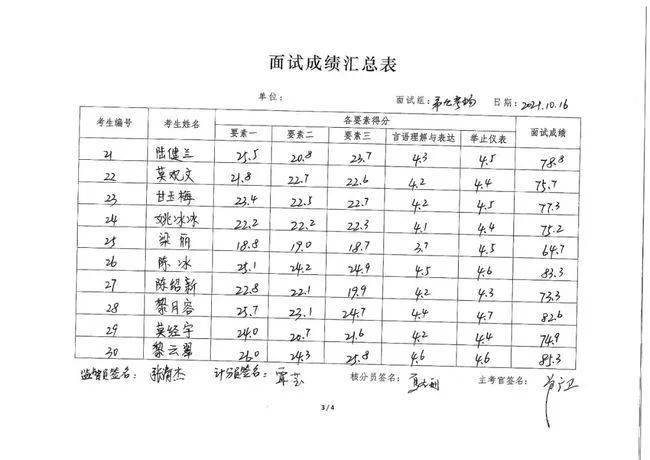 面试成绩汇总表
单位: 面试组: 第九考场 日期: 2021.10.16
考生编号 考生姓名 各要素得分 面试成绩
要素一 要素二 要素三 言语理解与表达 举止仪表
21 陆健兰 25.5 20.8 23.7 4.3 4.5 78.8
22 莫双文 21.8 22.7 22.6 4.2 4.4 75.7
23 甘玉梅 23.4 22.5 22.7 4.2 4.5 77.3
24 姚冰冰 22.2 22.2 22.3 4.1 4.4 75.2
25 梁丽 18.8 19.0 18.7 3.7 4.5 64.7
26 陈冰 25.1 24.2 24.9 4.5 4.6 83.3
27 陈绍新 22.8 22.1 19.9 4.2 4.3 73.3
28 黎月容 25.7 23.1 24.7 4.4 4.7 82.6
29 莫经宇 24.0 20.7 21.6 4.2 4.4 74.9
30 黎云翠 26.0 24.3 25.8 4.6 4.6 85.3
监督员签名: 计分员签名: 核分员签名: 主考官签名:
3/4